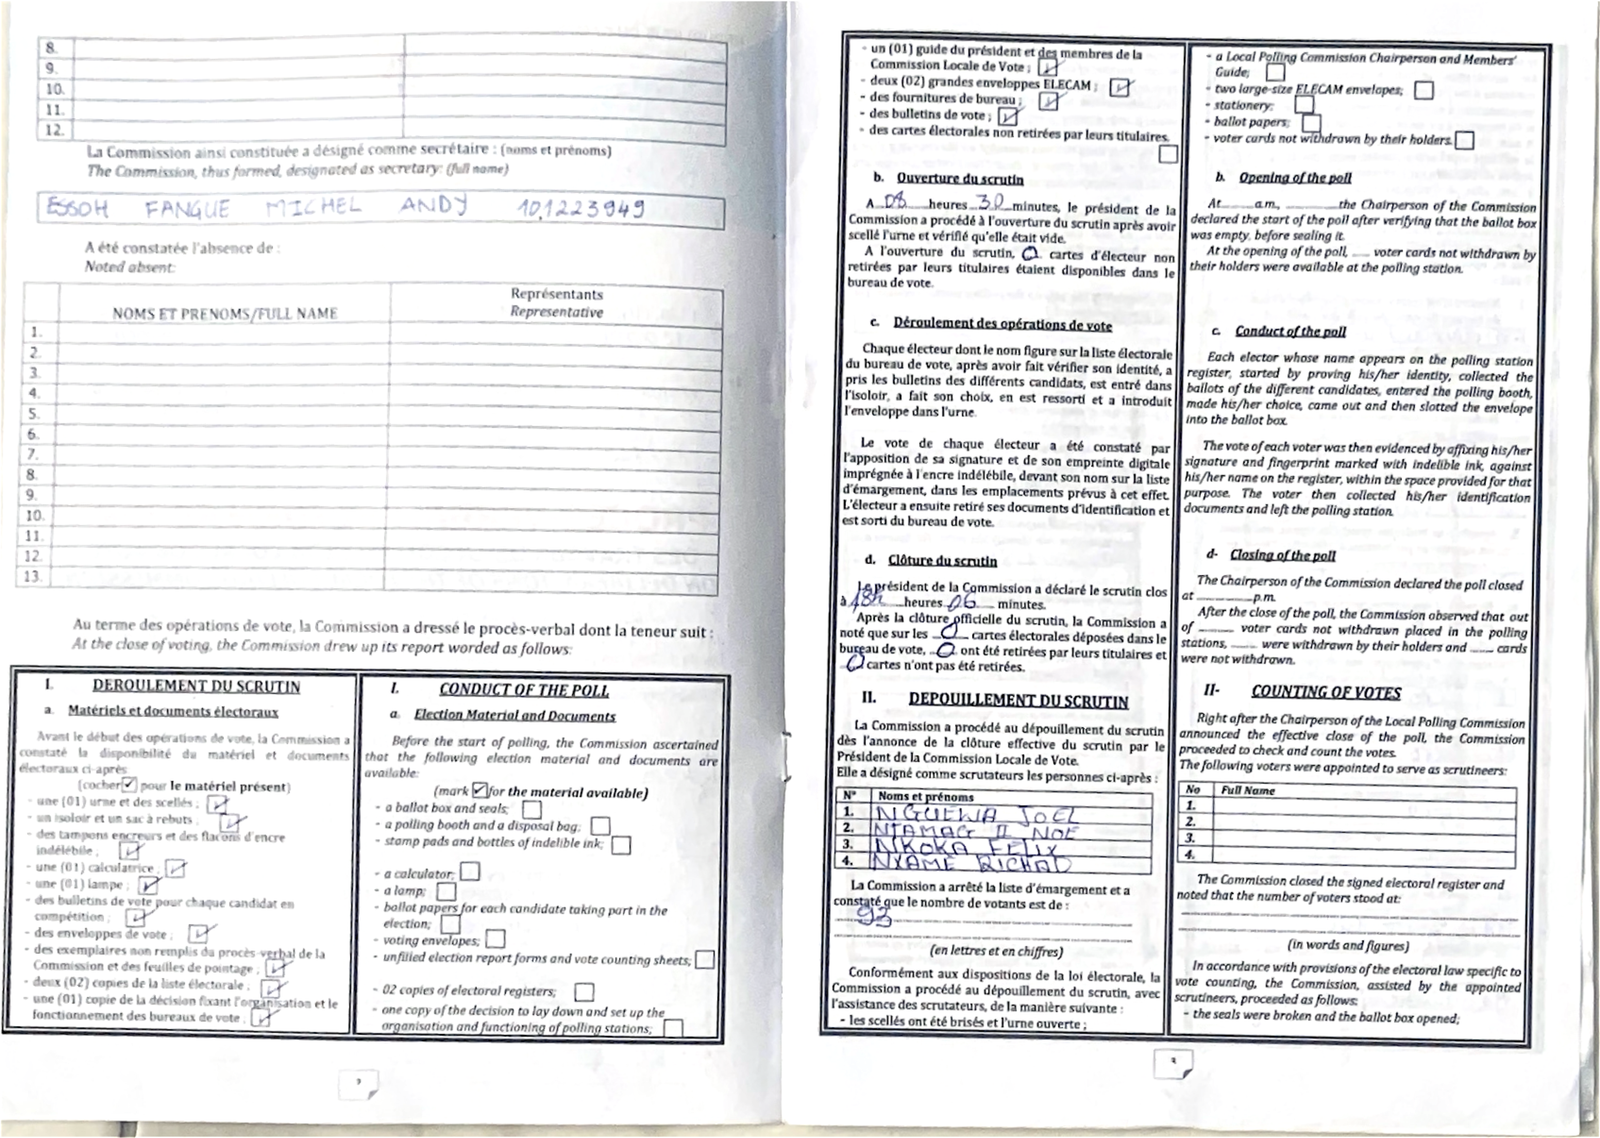 8.
9.
10.
11.
12.
La Commission ainsi constituée a désigné comme secrétaire : (noms et prénoms)
The Commission, thus formed, designated as secretary: (full name)
ESSOH FANGUE MICHEL ANDY 101223949
A été constatée l'absence de :
Noted absent:
NOMS ET PRENOMS/FULL NAME
Représentants
Representative
1.
2.
3.
4.
5.
6.
7.
8.
9.
10.
11.
12.
13.
Au terme des opérations de vote, la Commission a dressé le procès-verbal dont la teneur suit :
At the close of voting, the Commission drew up its report worded as follows:
I. DEROULEMENT DU SCRUTIN
a. Matériels et documents électoraux
Avant le début des opérations de vote, la Commission a
constaté la disponibilité du matériel et documents
électoraux ci-après
(cocher ✓ pour le matériel présent)
- une (01) urne et des scellés ;
- un isoloir et un sac à rebuts ;
- des tampons encreurs et des flacons d'encre
indélébile ;
- une (01) calculatrice ;
- une (01) lampe ;
- des bulletins de vote pour chaque candidat en
compétition ;
- des enveloppes de vote ;
- des exemplaires non remplis du procès-verbal de la
Commission et des feuilles de pointage ;
- deux (02) copies de la liste électorale ;
- une (01) copie de la décision fixant l'organisation et le
fonctionnement des bureaux de vote ;
I. CONDUCT OF THE POLL
a. Election Material and Documents
Before the start of polling, the Commission ascertained
that the following election material and documents are
available:
(mark ✓ for the material available)
- a ballot box and seals;
- a polling booth and a disposal bag;
- stamp pads and bottles of indelible ink;
- a calculator;
- a lamp;
- ballot papers for each candidate taking part in the
election;
- voting envelopes;
- unfilled election report forms and vote counting sheets;
- 02 copies of electoral registers;
- one copy of the decision to lay down and set up the
organisation and functioning of polling stations;
- un (01) guide du président et des membres de la
Commission Locale de Vote ;
- deux (02) grandes enveloppes ELECAM ;
- des fournitures de bureau ;
- des bulletins de vote ;
- des cartes électorales non retirées par leurs titulaires.
b. Ouverture du scrutin
A 08 heures 30 minutes, le président de la
Commission a procédé à l'ouverture du scrutin après avoir
scellé l'urne et vérifié qu'elle était vide.
A l'ouverture du scrutin, 0 cartes d'électeur non
retirées par leurs titulaires étaient disponibles dans le
bureau de vote.
c. Déroulement des opérations de vote
Chaque électeur dont le nom figure sur la liste électorale
du bureau de vote, après avoir fait vérifier son identité, a
pris les bulletins des différents candidats, est entré dans
l'isoloir, a fait son choix, en est ressorti et a introduit
l'enveloppe dans l'urne.
Le vote de chaque électeur a été constaté par
l'apposition de sa signature et de son empreinte digitale
imprégnée à l'encre indélébile, devant son nom sur la liste
d'émargement, dans les emplacements prévus à cet effet.
L'électeur a ensuite retiré ses documents d'identification et
est sorti du bureau de vote.
d. Clôture du scrutin
Le président de la Commission a déclaré le scrutin clos
à 18h heures 06 minutes.
Après la clôture officielle du scrutin, la Commission a
noté que sur les 0 cartes électorales déposées dans le
bureau de vote, 0 ont été retirées par leurs titulaires et
0 cartes n'ont pas été retirées.
II. DEPOUILLEMENT DU SCRUTIN
La Commission a procédé au dépouillement du scrutin
dès l'annonce de la clôture effective du scrutin par le
Président de la Commission Locale de Vote.
Elle a désigné comme scrutateurs les personnes ci-après :
N° Noms et prénoms
1. NGUEWA JOEL
2. NTAMAG II NOE
3. NKOKA FELIX
4. NYAME RICHAD
La Commission a arrêté la liste d'émargement et a
constaté que le nombre de votants est de :
93
(en lettres et en chiffres)
Conformément aux dispositions de la loi électorale, la
Commission a procédé au dépouillement du scrutin, avec
l'assistance des scrutateurs, de la manière suivante :
- les scellés ont été brisés et l'urne ouverte ;
- a Local Polling Commission Chairperson and Members'
Guide;
- two large-size ELECAM envelopes;
- stationery;
- ballot papers;
- voter cards not withdrawn by their holders.
b. Opening of the poll
At a.m., the Chairperson of the Commission
declared the start of the poll after verifying that the ballot box
was empty, before sealing it.
At the opening of the poll, voter cards not withdrawn by
their holders were available at the polling station.
c. Conduct of the poll
Each elector whose name appears on the polling station
register, started by proving his/her identity, collected the
ballots of the different candidates, entered the polling booth,
made his/her choice, came out and then slotted the envelope
into the ballot box.
The vote of each voter was then evidenced by affixing his/her
signature and fingerprint marked with indelible ink, against
his/her name on the register, within the space provided for that
purpose. The voter then collected his/her identification
documents and left the polling station.
d- Closing of the poll
The Chairperson of the Commission declared the poll closed
at p.m.
After the close of the poll, the Commission observed that out
of voter cards not withdrawn placed in the polling
stations, were withdrawn by their holders and cards
were not withdrawn.
II- COUNTING OF VOTES
Right after the Chairperson of the Local Polling Commission
announced the effective close of the poll, the Commission
proceeded to check and count the votes.
The following voters were appointed to serve as scrutineers:
No Full Name
1.
2.
3.
4.
The Commission closed the signed electoral register and
noted that the number of voters stood at:
(in words and figures)
In accordance with provisions of the electoral law specific to
vote counting, the Commission, assisted by the appointed
scrutineers, proceeded as follows:
- the seals were broken and the ballot box opened;